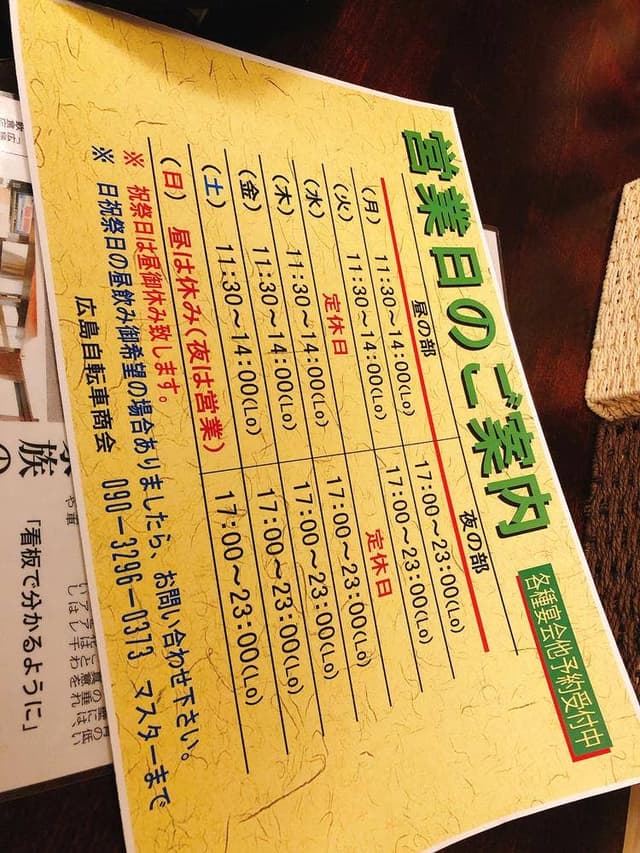 営業日のご案内
各種宴会他予約受付中
昼の部 夜の部
(月) 11:30～14:00(Lo) 17:00～23:00(Lo)
(火) 11:30～14:00(Lo) 17:00～23:00(Lo)
(水) 定休日 定休日
(木) 11:30～14:00(Lo) 17:00～23:00(Lo)
(金) 11:30～14:00(Lo) 17:00～23:00(Lo)
(土) 11:30～14:00(Lo) 17:00～23:00(Lo)
(日) 昼は休み(夜は営業) 17:00～23:00(Lo)
※ 祝祭日は昼御休み致します。
※ 日祝祭日の昼飲み御希望の場合ありましたら、お問い合わせ下さい。
広島自転車商会 090-3296-0373 マスターまで
族の
「看板で分かるように」